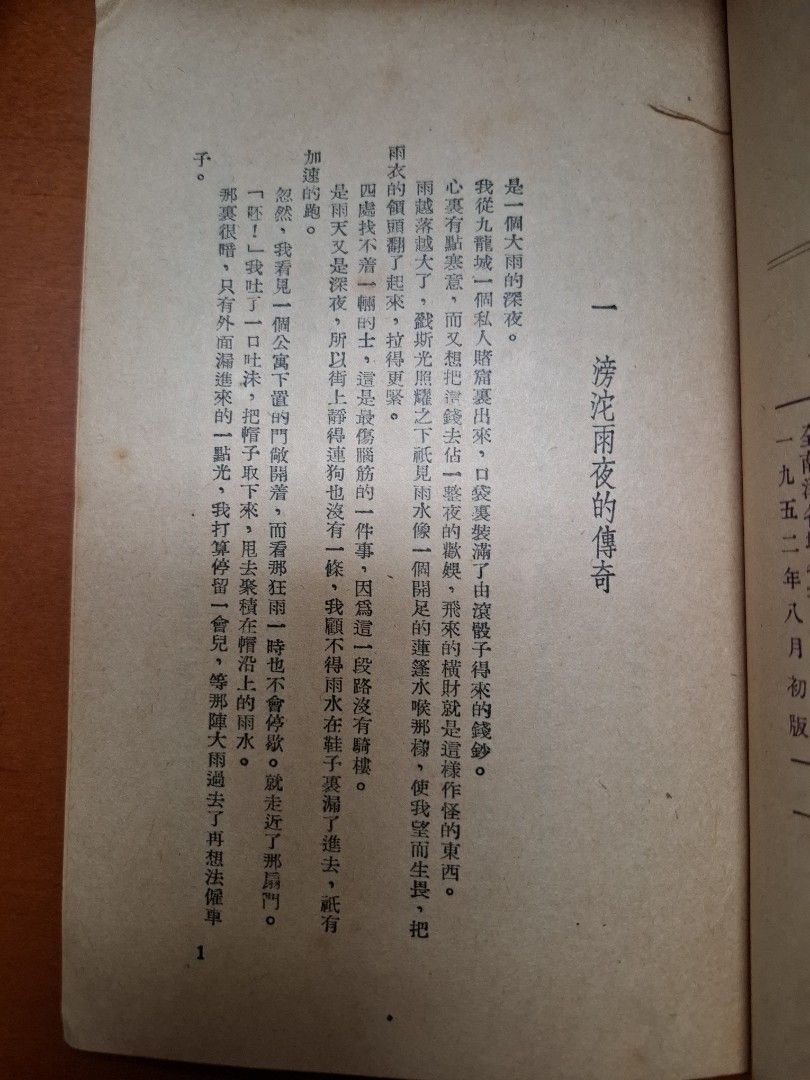 一　滂沱雨夜的傳奇
是一個大雨的深夜。
我從九龍城一個私人賭窟裏出來，口袋裏裝滿了由滾骰子得來的錢鈔。
心裏有點寒意，而又想把這錢去佔一整夜的歡娛，飛來的橫財就是這樣作怪的東西。
雨越落越大了，戤斯光照耀之下祇見雨水像一個開足的蓮篷水喉那樣，使我望而生畏，把
雨衣的領頭翻了起來，拉得更緊。
四處找不着一輛的士，這是最傷腦筋的一件事，因爲這一段路沒有騎樓。
是雨天又是深夜，所以街上靜得連狗也沒有一條，我顧不得雨水在鞋子裏漏了進去，祇有
加速的跑。
忽然，我看見一個公寓下置的門敞開着，而看那狂雨一時也不會停歇。就走近了那扇門。
「呸！」我吐了一口吐沫，把帽子取下來，甩去聚積在帽沿上的雨水。
那裏很暗，只有外面漏進來的一點光，我打算停留一會兒，等那陣大雨過去了再想法僱車
子。
1
一九五二年八月初版